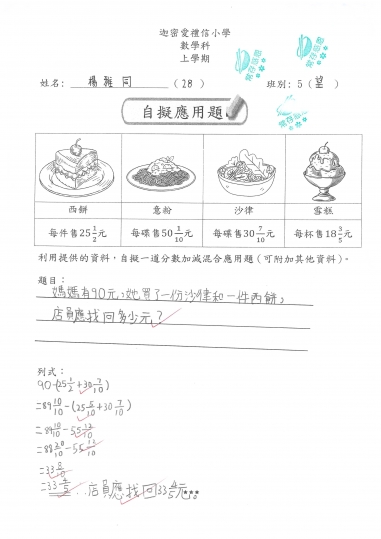 迦密愛禮信小學
數學科
上學期
姓名: 楊雅同 (28) 班別: 5 (望)
自擬應用題
西餅 意粉 沙律 雪糕
每件售25 1/2元 每碟售50 1/10元 每碟售30 7/10元 每杯售18 3/5元
利用提供的資料,自擬一道分數加減混合應用題(可附加其他資料)。
題目:
媽媽有90元,她買了一份沙律和一件西餅,
店員應找回多少元?
列式:
90-(25 1/2+30 7/10)
=89 10/10-(25 5/10+30 7/10)
=89 10/10-55 12/10
=88 20/10-55 12/10
=33 8/10
=33 4/5 ∴店員應找回33 4/5元。